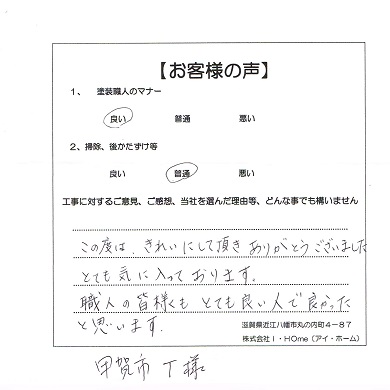 【お客様の声】
1、 塗装職人のマナー
良い 普通 悪い
2、掃除、後かたずけ等
良い 普通 悪い
工事に対するご意見、ご感想、当社を選んだ理由等、どんな事でも構いません
この度は、きれいにして頂きありがとうございました
とても気に入っております。
職人の皆様くも とても良い人で良かった
と思います。
滋賀県近江八幡市丸の内町4－87
株式会社I・HOme（アイ・ホーム）
甲賀市 T様